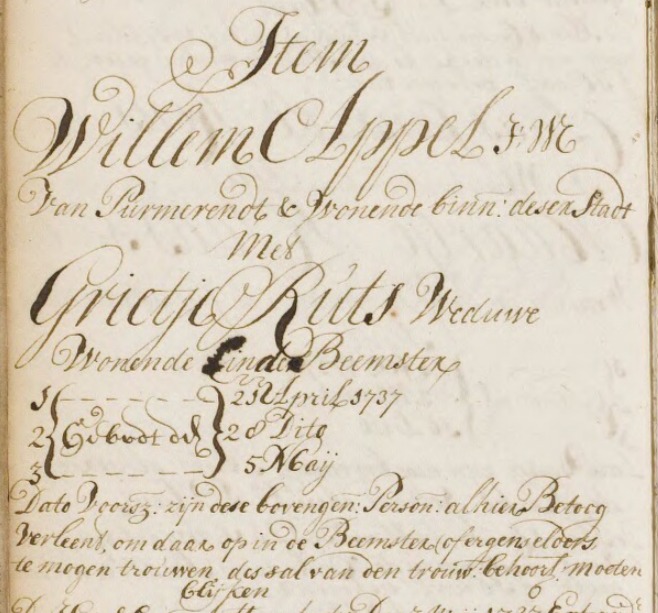 Item
Willem Appel J:M:
Van Purmerendt & Wonende binn: deser Stadt
Met
Grietje Ruts Weduwe
Wonende inde Beemster
1 21 April 1737
2 Gebodt den 28 Dito
3 5 Maij
Dato Voorsz: zijn dese bovengen: Person: alhier Betoog
Verleent, om daar op in de Beemster (of ergens eldors
te mogen trouwen, des sal van den trouw: behoort mooten
blijken